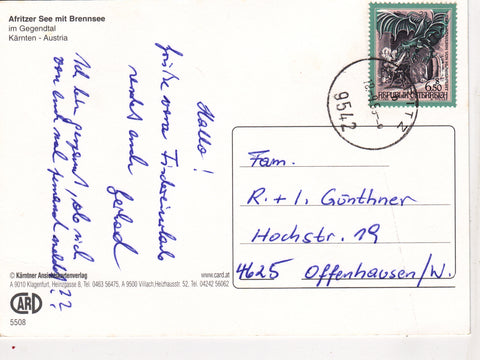 Afritzer See mit Brennsee
im Gegendtal
Kärnten - Austria
Hallo!
Grüße vom Fischereiurlaub
sendet euch Gerhard
Ich bin gespannt, ob sich
von euch mal jemand meldet??
6.50
REPUBLIK ÖSTERREICH
9542
Fam.
R. + I. Günthner
Hochstr. 19
4625 Offenhausen/W.
© Kärntner Ansichtskartenverlag www.card.at
A 9010 Klagenfurt, Heinzgasse 8, Tel. 0463 56475, A 9500 Villach, Heizhausstr. 52, Tel. 04242 56062
CARD
5508